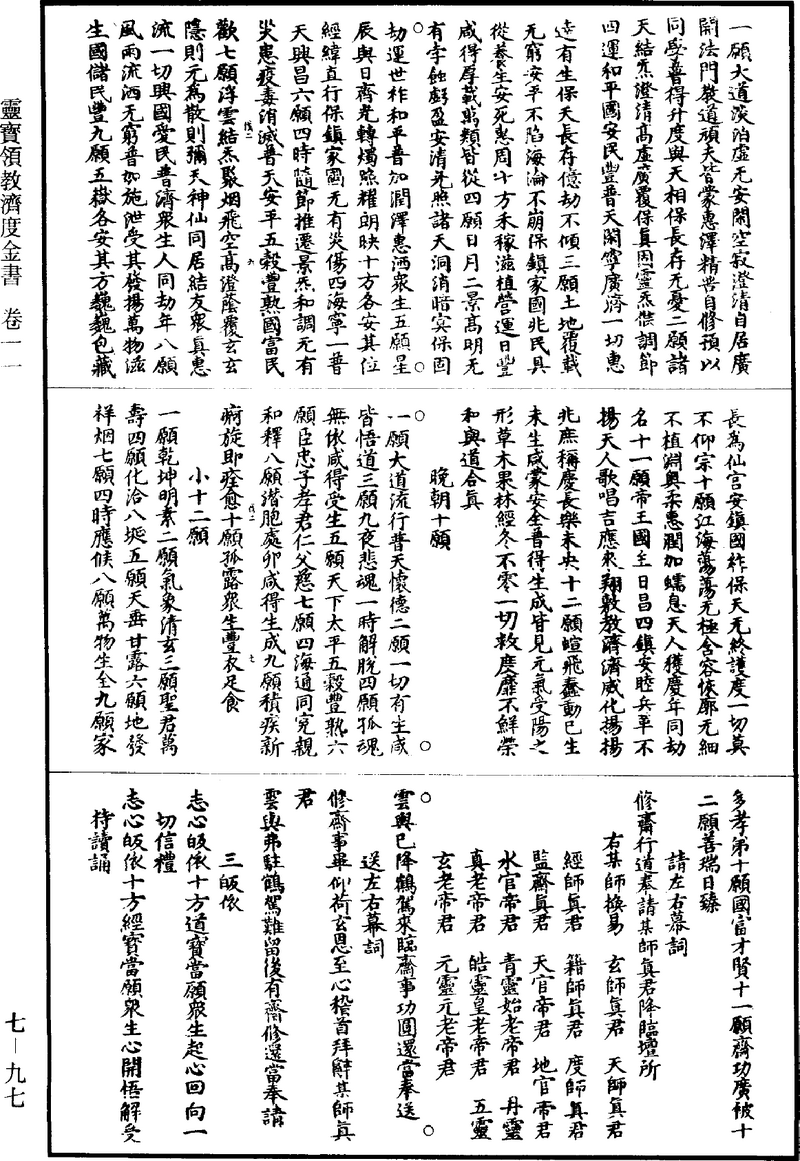 靈寶領教濟度金書　卷一一
七－九七
一願大道淡泊虛无安閑空寂澄清自居廣
開法門嚴道頑夫皆蒙惠澤精苦自修預以
同學普得升度與天相保長存无憂二願諸
天結炁澄清高虛廣覆保真周靈炁恬調節
四運和平國安民豐普天閑寧廣濟一切惠
逮有生保天長存億劫不傾三願土地覆載
无窮安平不陷海淪不崩保鎮家國兆民具
從養生安死惠周十方禾稼滋植營運日豐
咸得厚載萬類皆從四願日月二景高明无
有孛蝕虧盈安清光照諸天洞消暗冥保固
劫運世祚和平普加潤澤惠洒眾生五願星
辰與日齊光轉燭照耀朗映十方各安其位
經緯直行保鎮家國无有災傷四海寧一普
天興昌六願四時隨節推遷景炁和調无有
災患疫毒消滅普天安平五穀豐熟國富民
歡七願浮雲結炁聚烟飛空高澄蔭覆玄玄
隱則元為散則彌天神仙同居結友眾真惠
流一切興國愛民普濟眾生人同劫年八願
風雨流洒无窮普加施泄受其發揚萬物滋
生國儲民豐九願五嶽各安其方巍巍包藏
長為仙宮安鎮國祚保天无終護度一切莫
不仰宗十願江海蕩蕩无極含容恢廓无細
不植淵輿柔惠潤加蠕息天人獲慶年同劫
名十一願帝王國主日昌四鎮安睦兵革不
揚天人歌唱吉應來翔敷教濟濟威化揚揚
兆庶稱慶長樂未央十二願蝖飛蠢動已生
未生咸蒙安全普得生成皆見元氣受陽之
形草木果林經冬不零一切救度靡不鮮榮
和與道合真
晚朝十願
一願大道流行普天懷德二願一切有生咸
皆悟道三願九夜悲魂一時解脫四願孤魂
無依咸得受生五願天下太平五穀豐熟六
願臣忠子孝君仁父慈七願四海通同冤親
和釋八願潛胞處卵咸得生成九願積疾新
痾旋即痊愈十願孤露眾生豐衣足食
小十二願
一願乾坤明素二願氣象清玄三願聖君萬
壽四願化洽八埏五願天垂甘露六願地發
祥烟七願四時應候八願萬物生全九願家
多孝弟十願國富才賢十一願齋功廣被十
二願善瑞日臻
請左右幕詞
修齋行道奉請某師真君降臨壇所
右某師換易　玄師真君　天師真君
經師真君　籍師真君　度師真君
監齋真君　天官帝君　地官帝君
水官帝君　青靈始老帝君　丹靈
真老帝君　皓靈皇老帝君　五靈
玄老帝君　元靈元老帝君
雲輿已降鶴駕來臨齋事功圓還當奉送
送左右幕詞
修齋事畢仰荷玄恩至心稽首拜辭某師真
君
雲輿弗駐鶴駕難留後有齋修還當奉請
三皈依
志心皈依十方道寶當願眾生起心回向一
切信禮
志心皈依十方經寶當願眾生心開悟解受
持讀誦